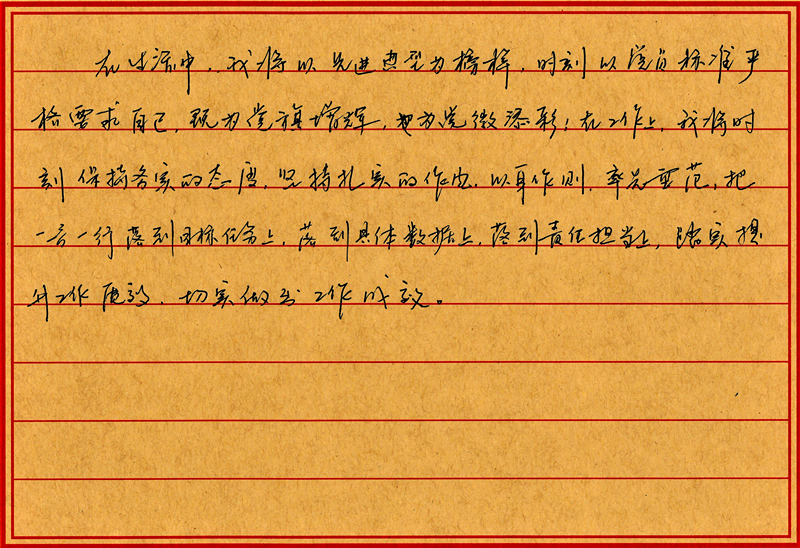 在生活中，我将以先进典型为榜样，时刻以党员标准严
格要求自己，既为党旗增辉，也为党徽添彩！在工作上，我将时
刻保持务实的态度，坚持扎实的作风，以身作则，率先垂范，把
一言一行落到目标任务上，落到具体数据上，落到责任担当上，踏实提
升工作质效，切实做出工作成效。